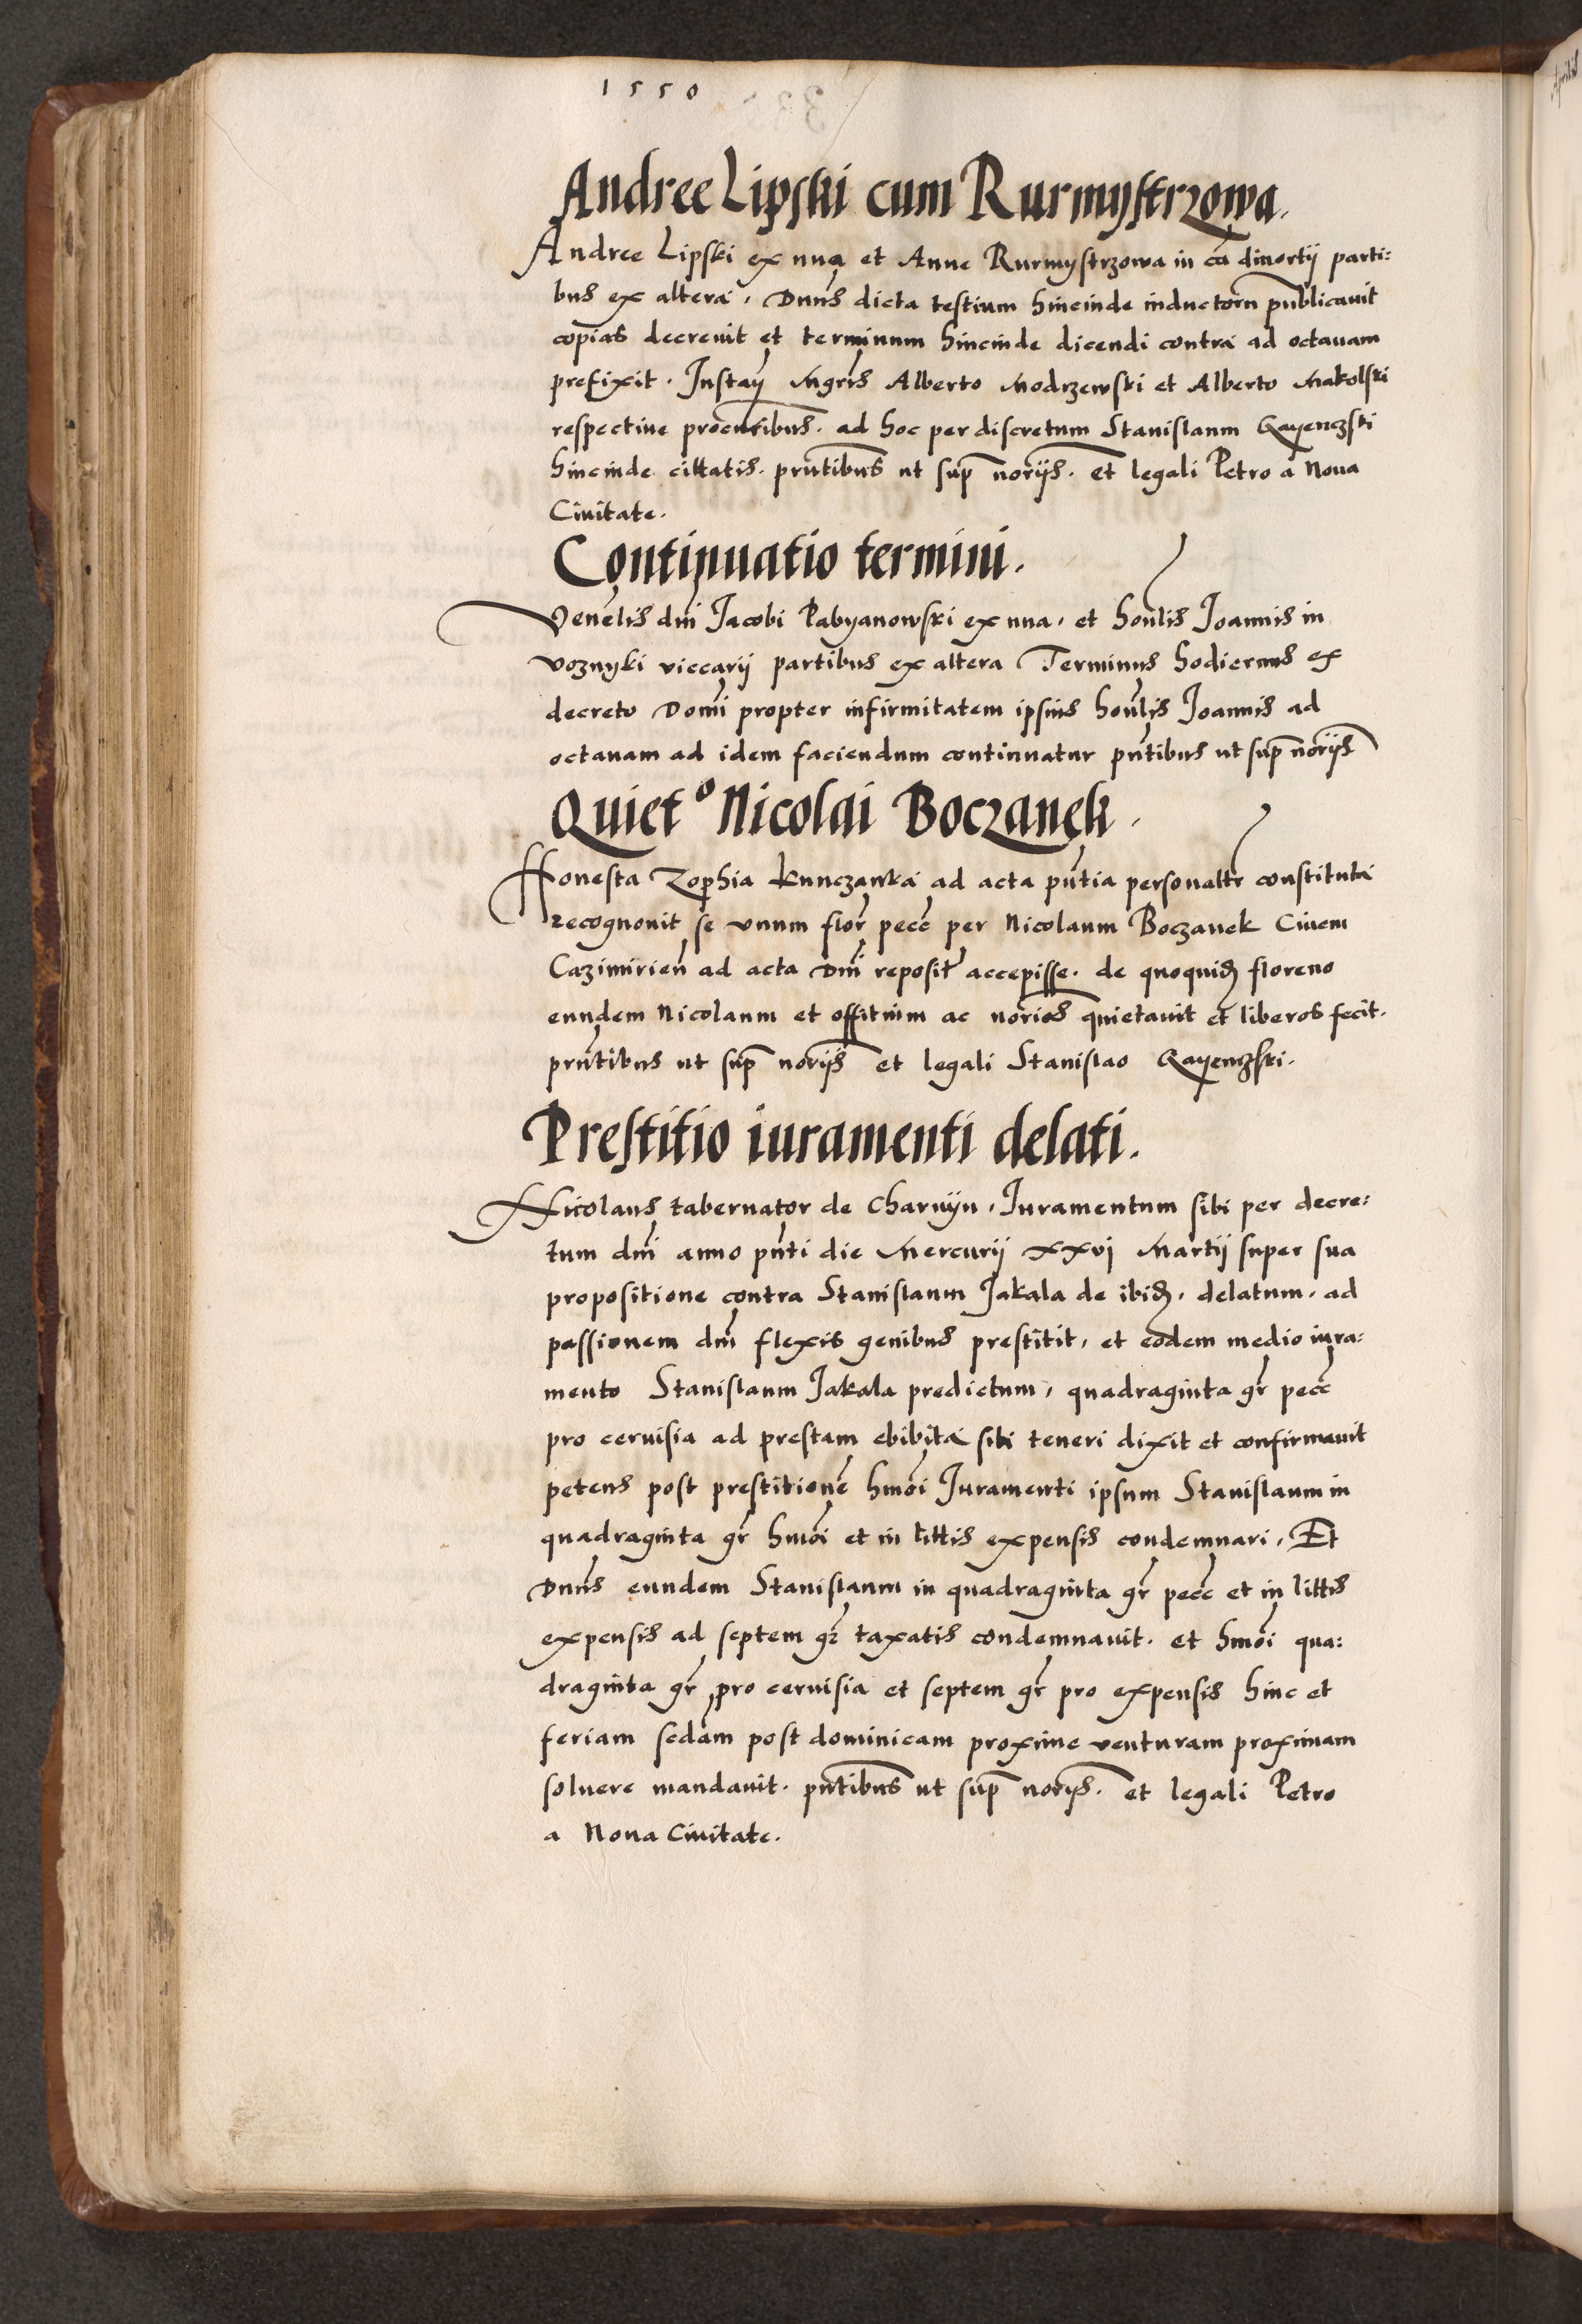 1550
Andree Lipski cum Rurmystrzowa.
Andree Lipski ex una et Anne Rurmystrzowa in ca divortij parti:
bus ex altera. Dnus dicta testium hincinde inductoru publicavit
copias decrevit et terminum hincinde dicendi contra ad octavam
prefixit. Instan Mgris Alberto Modrzewski et Alberto Makolski
respective procuribus. ad hoc per discretum Stanislaum Gayenczski
hincinde cittatis. prntibus ut sup noriis. et legali Petro a Nova
Civitate.
Continuatio termini.
Venelis dni Jacobi Pabyanowski ex una. et honlis Joannis in
voznyki viccarij partibus ex altera Terminus hodiernus ex
decreto Domi propter infirmitatem ipsius honlis Joannis ad
octavam ad idem faciendum continuatur pntibus ut sup noriis
Quieto Nicolai Boczanek.
Honesta Zophia Kunczanka ad acta pntia personaltr constituta
recognovit se unum flor pecc per Nicolaum Boczanek Civem
Cazimirien ad acta Dni reposit accepisse. de quoquid floreno
eundem Nicolaum et offitium ac norios quietavit et liberos fecit.
prntibus ut sup noriis et legali Stanislao Gayenczski.
Prestitio iuramenti delati.
Nicolaus tabernator de Charvyn. Juramentum sibi per decre:
tum dni anno pnti die Mercurij xxvj Martij super sua
propositione contra Stanislaum Jakala de ibid. delatum. ad
passionem dni flexis genibus prestitit. et eodem medio iura:
mento Stanislaum Jakala predictum, quadraginta gr pecc
pro cervisia ad prestam ebibita sibi teneri dixit et confirmavit
petens post prestitione hmoi Juramenti ipsum Stanislaum in
quadraginta gr hmoi et in littis expensis condemnari. Et
Dnus eundem Stanislaum in quadraginta gr pecc et in littis
expensis ad septem gr taxatis condemnavit. et hmoi qua:
draginta gr pro cervisia et septem gr pro expensis hinc et
feriam sedam post dominicam proxime venturam proximam
solvere mandavit. pntibus ut sup noriis. et legali Petro
a Nova Civitate.